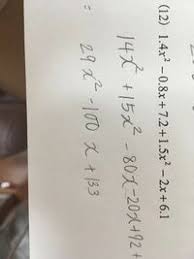 (12) 1.4x² - 0.8x + 7.2 + 1.5x² - 2x + 6.1
14x² + 15x² - 80x - 20x + 92 +
= 29x² - 100x + 133